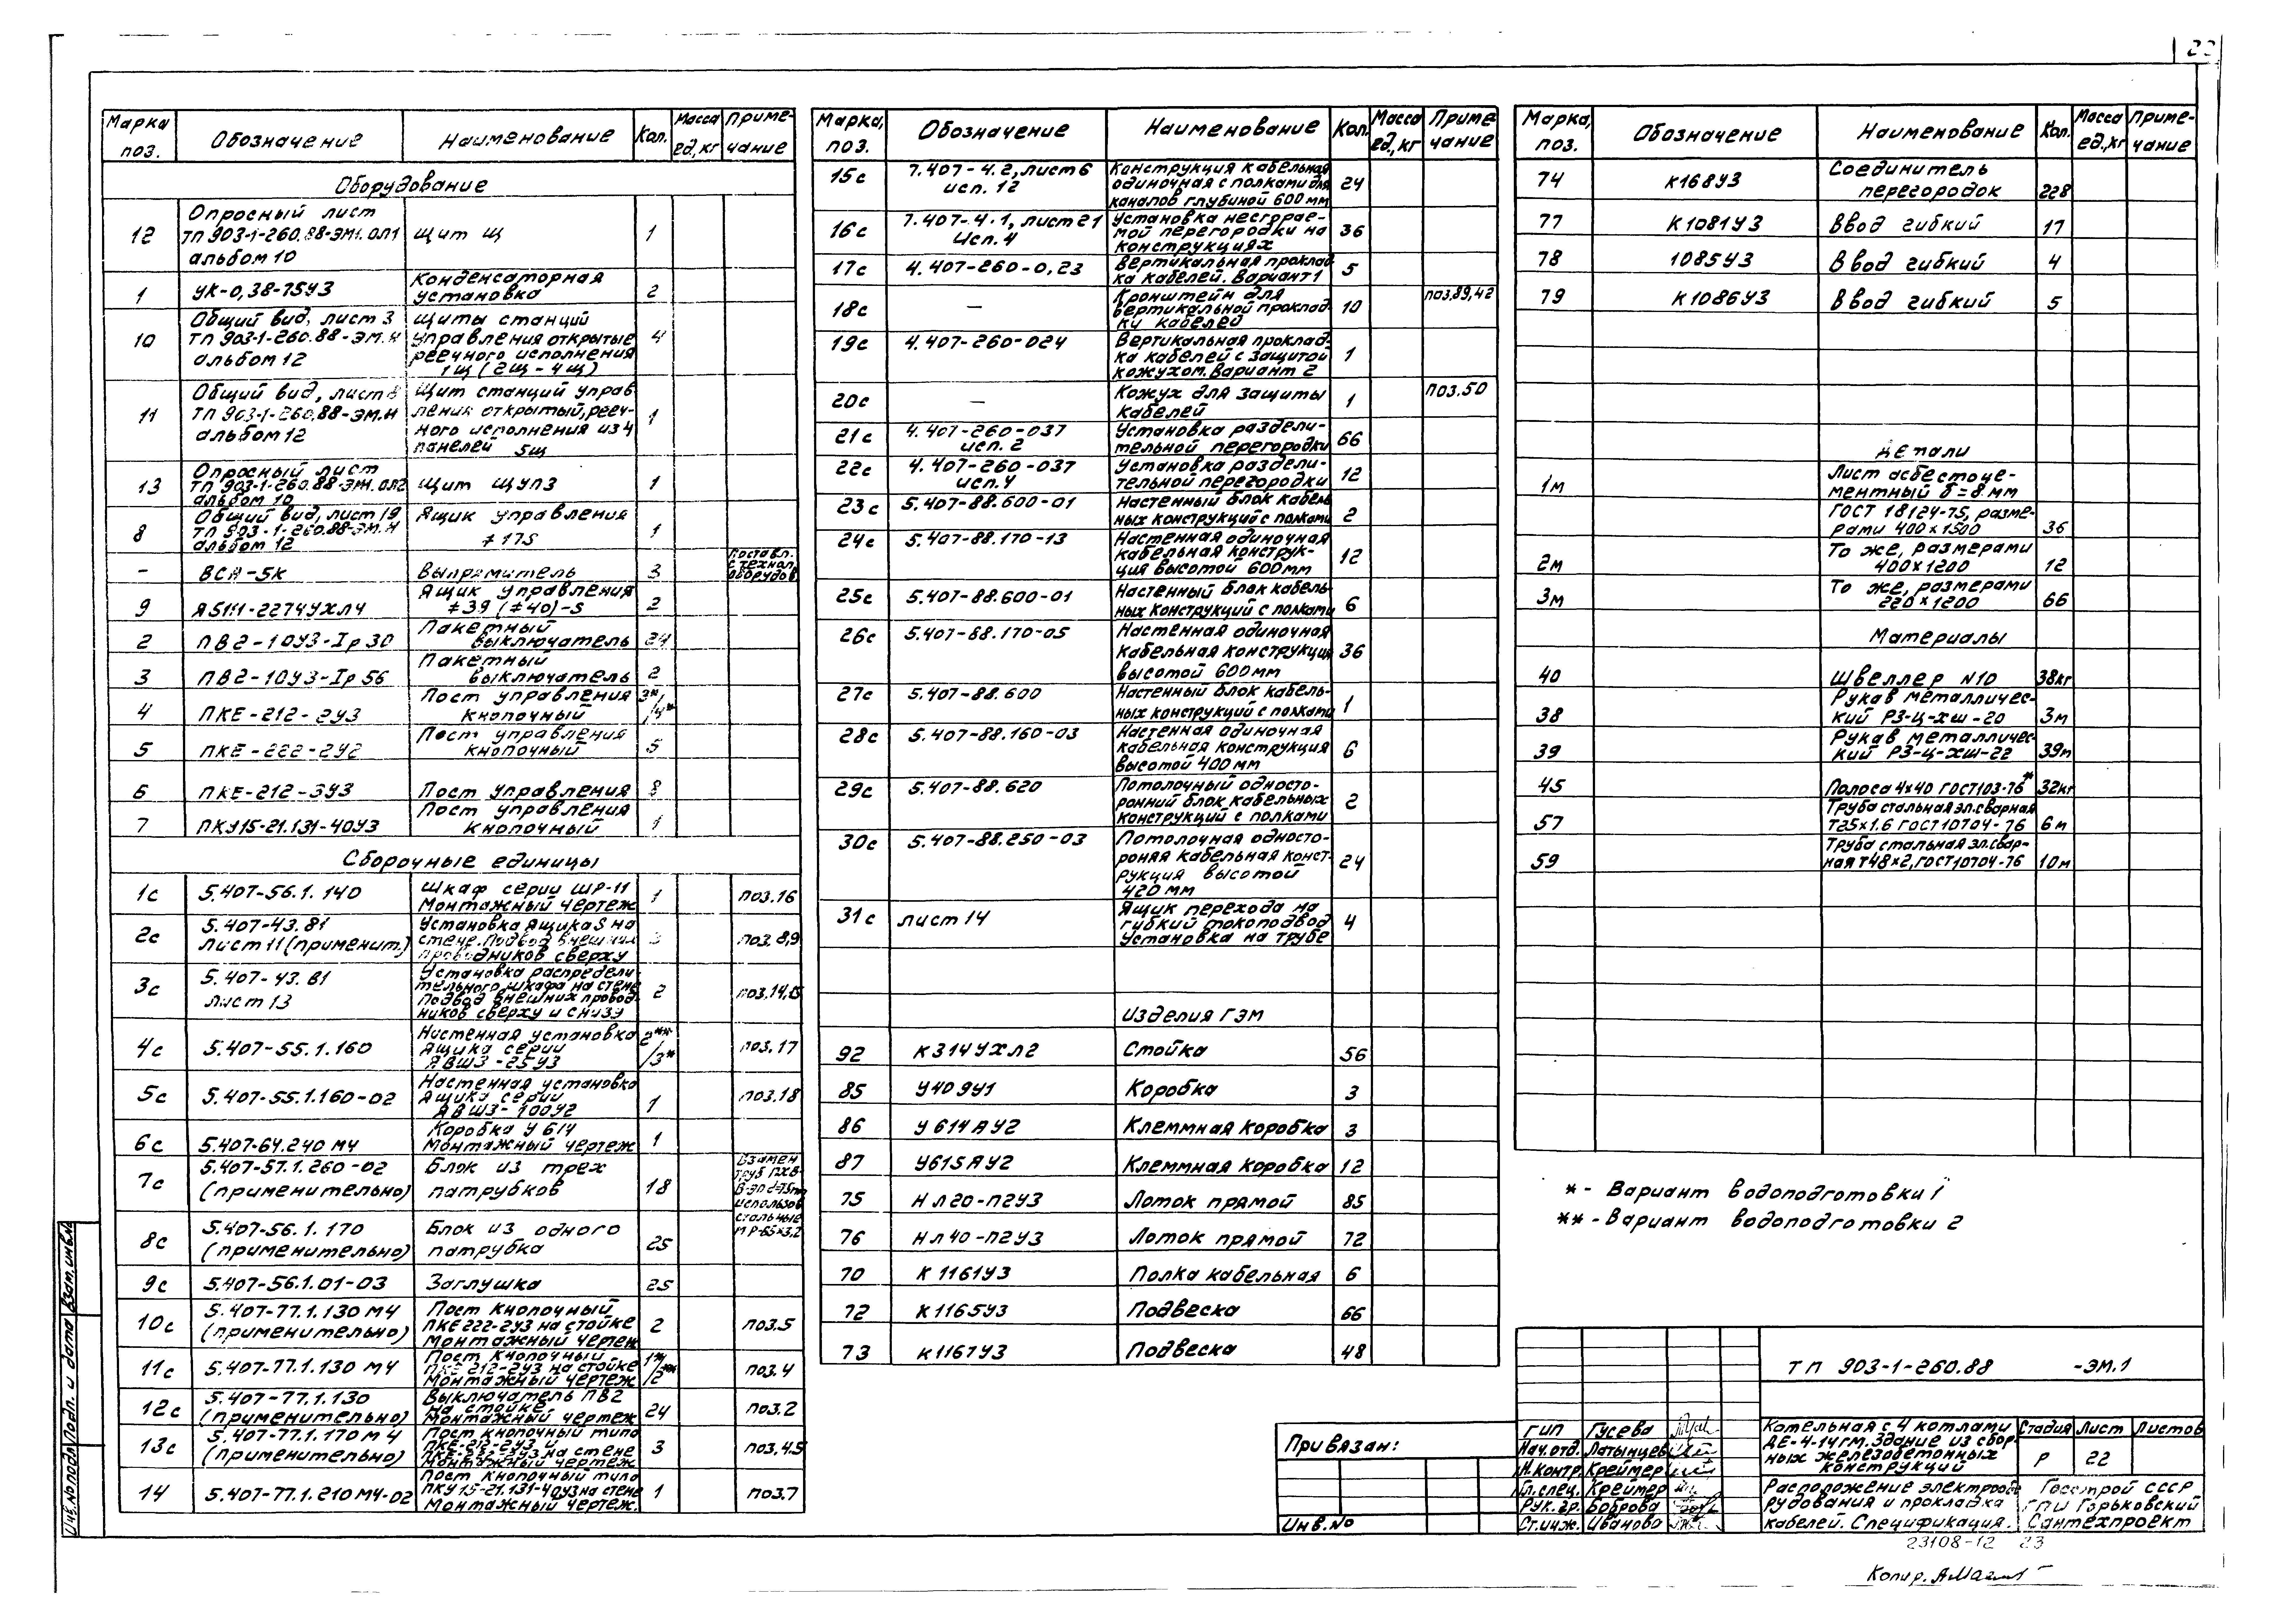 22
Марка поз. Обозначение Наименование Кол. Масса ед,кг Приме-чание
Оборудование
12 Опросный лист ТП 903-1-260.88-ЭМ1.ОЛ1 альбом 10 Щит Щ 1
1 УК-0,38-75У3 Конденсаторная установка 2
10 Общий вид, лист 3 ТП 903-1-260.88-ЭМ.Н альбом 12 Щиты станций управления открытые реечного исполнения 1Щ (2Щ-4Щ) 4
11 Общий вид, лист ТП 903-1-260.88-ЭМ.Н альбом 12 Щит станций управ-ления открытый, рееч-ного исполнения из 4 панелей 5Щ 1
13 Опросный лист ТП 903-1-260.88-ЭМ.ОЛ2 альбом 10 Щит ЩУПЗ 1
8 Общий вид, лист 19 ТП 903-1-260.88-ЭМ.Н альбом 12 Ящик управления ≠17S 1
- ВСА-5К Выпрямитель 3 Поставл. с технол. оборудов
9 Я5111-2274УХЛ4 Ящик управления ≠39 (≠40)-S 2
2 ПВ2-10У3-Iр 30 Пакетный выключатель 24
3 ПВ2-10У3-Iр 56 Пакетный выключатель 2
4 ПКЕ-212-2У3 Пост управления кнопочный
5 ПКЕ-222-2У2 Пост управления кнопочный 5
6 ПКЕ-212-3У3 Пост управления 8
7 ПКУ15-21.131-40У3 Пост управления кнопочный 1
Сборочные единицы
1с 5.407-56.1.140 Шкаф серии ШР-11 Монтажный чертеж 1 поз.16
2с 5.407-43.В1 лист 11 (применит.) Установка ящика S на стене. Подвод внешних проводников сверху 3 поз. 8,9
3с 5.407-43.В1 лист 13 Установка распредели-тельного шкафа на стене Подвод внешних провод-ников сверху и снизу 2 поз.14,15
4с 5.407-55.1.160 Настенная установка ящика серии ЯВШ3-25У3 2**/3* поз.17
5с 5.407-55.1.160-02 Настенная установка ящика серии ЯВШ3-100У2 1 поз.18
6с 5.407-64.240 МЧ Коробка У 614 Монтажный чертеж 1
7с 5.407-57.1.260-02 (применительно) Блок из трех патрубков 18 Взамен труб использов стальные
8с 5.407-56.1.170 (применительно) Блок из одного патрубка 25
9с 5.407-56.1.01-03 Заглушка 25
10с 5.407-77.1.130 МЧ (применительно) Пост кнопочный ПКЕ 222-2У3 на стойке Монтажный чертеж 2 поз.5
11с 5.407-77.1.130 МЧ Пост кнопочный ПКЕ 212-2У3 на стойке Монтажный чертеж 1*/2** поз.4
12с 5.407-77.1.130 (применительно) Выключатель ПВ2 на стойке Монтажный чертеж 24 поз.2
13с 5.407-77.1.170 МЧ (применительно) Пост кнопочный типа ПКЕ-212-2У3 и на стене Монтажный чертеж 3 поз.4,5
14 5.407-77.1.210 МЧ-02 Пост кнопочный типа ПКУ 15-21.131-40У3 на стене Монтажный чертеж. 1 поз.7
Марка, поз. Обозначение Наименование Кол. Масса ед., кг Приме чание
15с 7.407-4.2, лист 6 исп. 12 Конструкция кабельная одиночная с полками для каналов глубиной 600 мм 24
16с 7.407-4.1, лист 21 исп. 4 Установка несгорае-мой перегородки на конструкциях 36
17с 4.407-260-0,23 Вертикальная проклад ка кабелей. Вариант 1 5
18с - Кронштейн для вертикальной проклад-ки кабелей 10 поз.89,42
19с 4.407-260-024 Вертикальная проклад-ка кабелей с защитой кожухом. Вариант 2 1
20с - Кожух для защиты кабелей 1 Поз.50
21с 4.407-260-037 исп. 2 Установка раздели-тельной перегородки 66
22с 4.407-260-037 исп.4 Установка раздели-тельной перегородки 12
23с 5.407-88.600-01 Настенный блок кабель ных конструкций с полками 2
24с 5.407-88.170-13 Настенная одиночная кабельная конструк-ция высотой 600мм 12
25с 5.407-88.600-01 Настенный блок кабель-ных конструкций с полками 6
26с 5.407-88.170-05 Настенная одиночная кабельная конструкция высотой 600 мм 36
27с 5.407-88.600 Настенный блок кабель-ных конструкций с полками 1
28с 5.407-88.160-03 Настенная одиночная кабельная конструкция высотой 400 мм 6
29с 5.407-88.620 Потолочный односто-ронний блок кабельных конструкций с полками 2
30с 5.407-88.250-03 Потолочная односто-роняя кабельная конст-рукция высотой 420 мм 24
31с лист 14 Ящик перехода на гибкий токоподвод Установка на трубе 4
Изделия ГЭМ
92 К 314УХЛ2 Стойка 56
85 У409У1 Коробка 3
86 У 614 А У2 Клеммная коробка 3
87 У615 А У2 Клеммная коробка 12
75 НЛ20-П2У3 Лоток прямой 85
76 НЛ40-П2У3 Лоток прямой 72
70 К 1161У3 Полка кабельная 6
72 К 1165У3 Подвеска 66
73 К1167У3 Подвеска 48
Марка, поз. Обозначение Наименование Кол. Масса ед.,кг Приме-чание
74 К168У3 Соединитель перегородок 228
77 К1081У3 Ввод гибкий 17
78 1085У3 Ввод гибкий 4
79 К1086У3 Ввод гибкий 5
Детали
1м Лист асбестоце-ментный б=8 мм ГОСТ 18124-75, разме-рами 400х1500 36
2м То же, размерами 400х1200 12
3м То же, размерами 220х1200 66
Материалы
40 Швеллер N10 38кг
38 Рукав металличес-кий РЗ-Ц-ХШ-20 3м
39 Рукав металличес-кий РЗ-Ц-ХШ-22 39м
45 Полоса 4х40 ГОСТ103-76* 32кг
57 Труба стальная эл.сварная Т25х1.6 ГОСТ10704-76 6м
59 Труба стальная эл.свар-ная Т48х2, ГОСТ10704-76 10м
* - Вариант водоподготовки 1
** - Вариант водоподготовки 2
ТП 903-1-260.88 -ЭМ.1
Привязан:
Инв.No
ГИП Гусева
Нач.отд. Латынцев
Н.контр. Креймер
Гл.спец. Креймер
Рук.гр. Боброва
Ст.инж. Иванова
Котельная с 4 котлами ДЕ-4-14ГМ. Здание из сбор-ных железобетонных конструкций
Стадия Лист Листов
Р 22
Расположение электрооб рудования и прокладка кабелей. Спецификация.
Госстрой СССР ГПИ Горьковский Сантехпроект
23108-12 23
Копир.
Инв.No подл. Подп. и дата Взам.инв.No